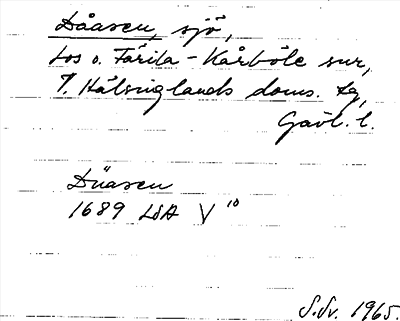 Dåasen, sjö,
Los o. Färila-Kårböle snr,
V. Hälsinglands doms. tg,
Gävl. l.
Düasen
1689 LSA V 10
S.Sv. 1965.